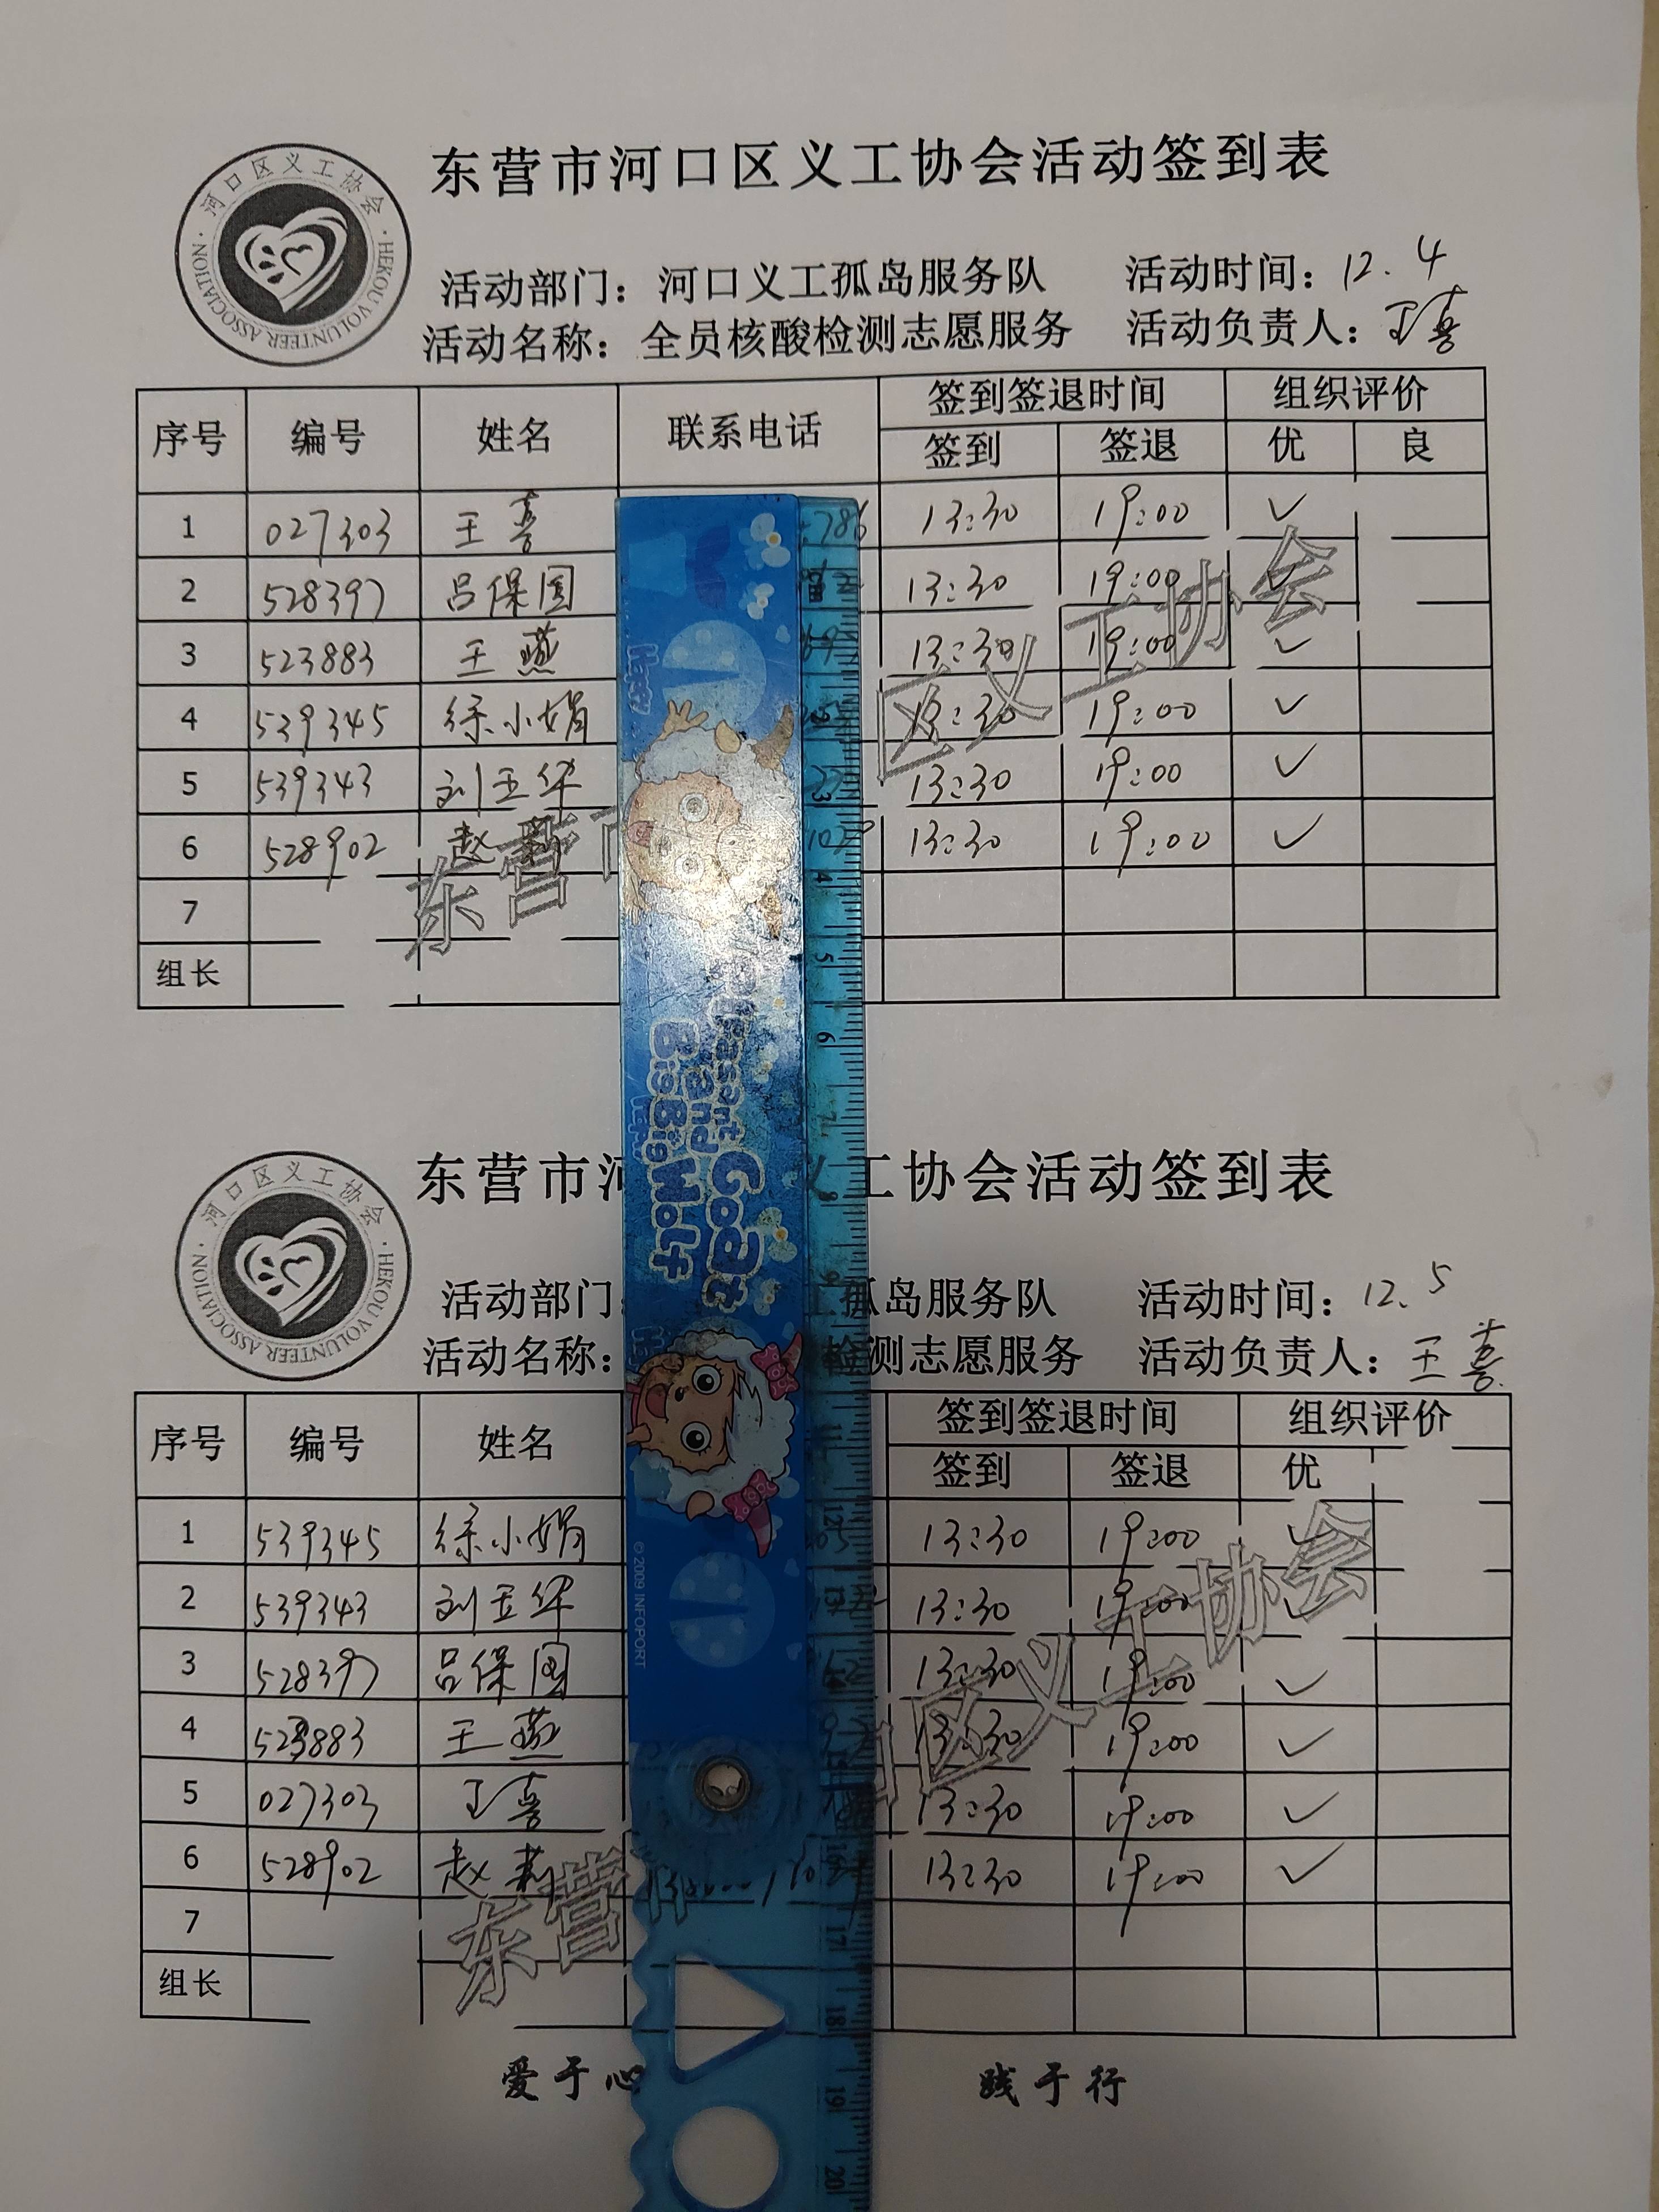 东营市河口区义工协会活动签到表
河口区义工协会
HEKOU VOLUNTEER ASSOCIATION
活动部门：河口义工孤岛服务队 活动时间：12.4
活动名称：全员核酸检测志愿服务 活动负责人：王喜
序号 编号 姓名 联系电话 签到签退时间 组织评价
签到 签退 优 良
1 027303 王喜 13:30 19:00 ✓
2 528397 吕保国 13:30 19:00 ✓
3 523883 王燕 13:30 19:00 ✓
4 539345 徐小娟 13:30 19:00 ✓
5 539343 刘玉华 13:30 19:00 ✓
6 528902 赵莉 13:30 19:00 ✓
7
组长
东营 区义工协会
Pleasant Goat
and
Big Big Wolf
© 2009 INFOPORT
3 4 5 6 7 8 9 11 12 13 14 15 16 17 18 19 20
东营市 工协会活动签到表
河口区义工协会
HEKOU VOLUNTEER ASSOCIATION
活动部门 孤岛服务队 活动时间：12.5
活动名称： 检测志愿服务 活动负责人：王喜
序号 编号 姓名 签到签退时间 组织评价
签到 签退 优
1 539345 徐小娟 13:30 19:00 ✓
2 539343 刘玉华 13:30 19:00 ✓
3 528397 吕保国 13:30 19:00 ✓
4 523883 王燕 13:30 19:00 ✓
5 027303 王喜 13:30 19:00 ✓
6 528902 赵莉 13:30 19:00 ✓
7
组长
东营 区义工协会
爱于心 践于行